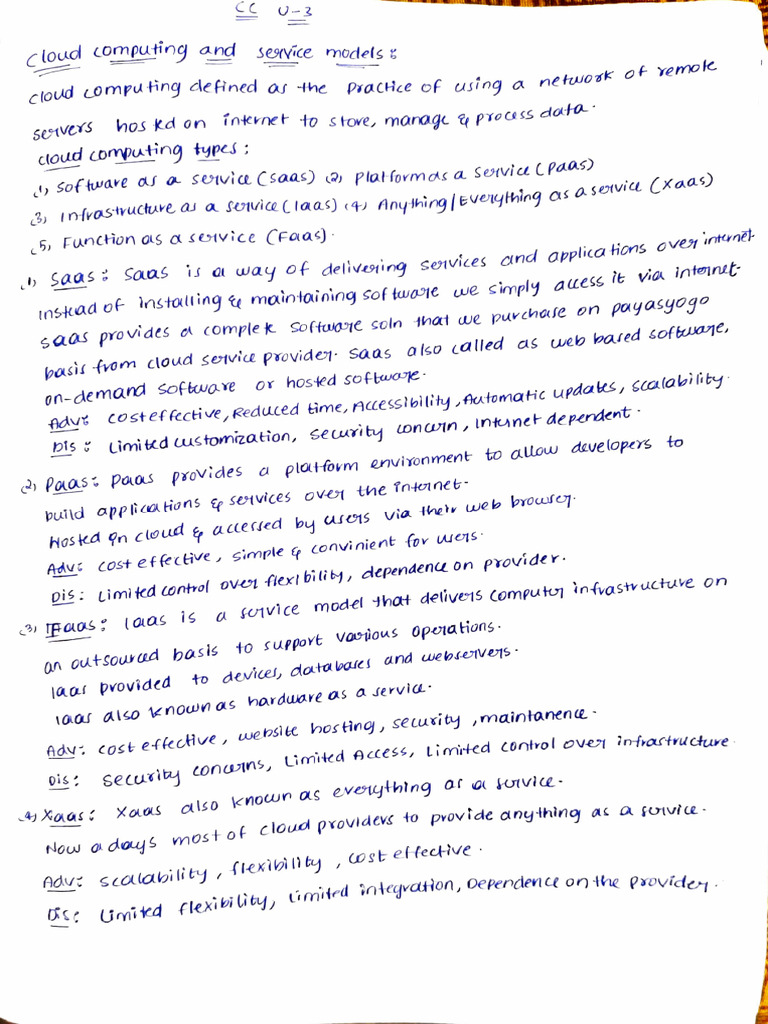 CC U-3
Cloud computing and service models:
Cloud computing defined as the Practice of using a network of remote
servers hosted on internet to store, manage & process data.
cloud computing types:
(1) Software as a service (saas) (2) Platform as a service (paas)
(3) Infrastructure as a service (Iaas) (4) Anything/Everything as a service (Xaas)
(5) Function as a service (Faas).
(1) Saas: Saas is a way of delivering services and applications over internet.
instead of installing & maintaining software we simply access it via internet.
Saas provides a complete software soln that we purchase on payasyogo
basis from cloud service provider. saas also called as web based software,
on-demand software or hosted software.
Adv: cost effective, Reduced time, Accessibility, Automatic updates, scalability.
Dis: Limited customization, security concern, Internet dependent.
(2) Paas: paas provides a platform environment to allow developers to
build applications & services over the internet.
Hosted on cloud & accessed by users via their web browser.
Adv: cost effective, simple & convinient for users.
Dis: Limited control over flexibility, dependence on provider.
(3) Iaas: Iaas is a service model that delivers computer infrastructure on
an outsourced basis to support various operations.
Iaas provided to devices, databases and webservers.
Iaas also known as hardware as a service.
Adv: cost effective, website hosting, security, maintanence.
Dis: Security concerns, Limited Access, Limited control over infrastructure.
(4) Xaas: Xaas also known as everything as a service.
Now a days most of cloud providers to provide anything as a service.
Adv: scalability, flexibility, cost effective.
Dis: Limited flexibility, limited integration, Dependence on the provider.